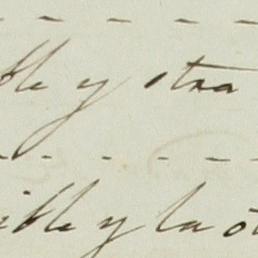 ble y otra
ible y la ot